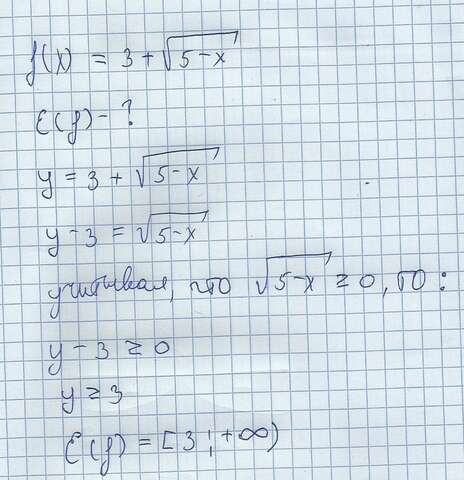 f(x) = 3 + √(5-x)
E(f) - ?
y = 3 + √(5-x)
y - 3 = √(5-x)
учитывая, что √(5-x) ≥ 0, то:
y - 3 ≥ 0
y ≥ 3
E(f) = [3; +∞)